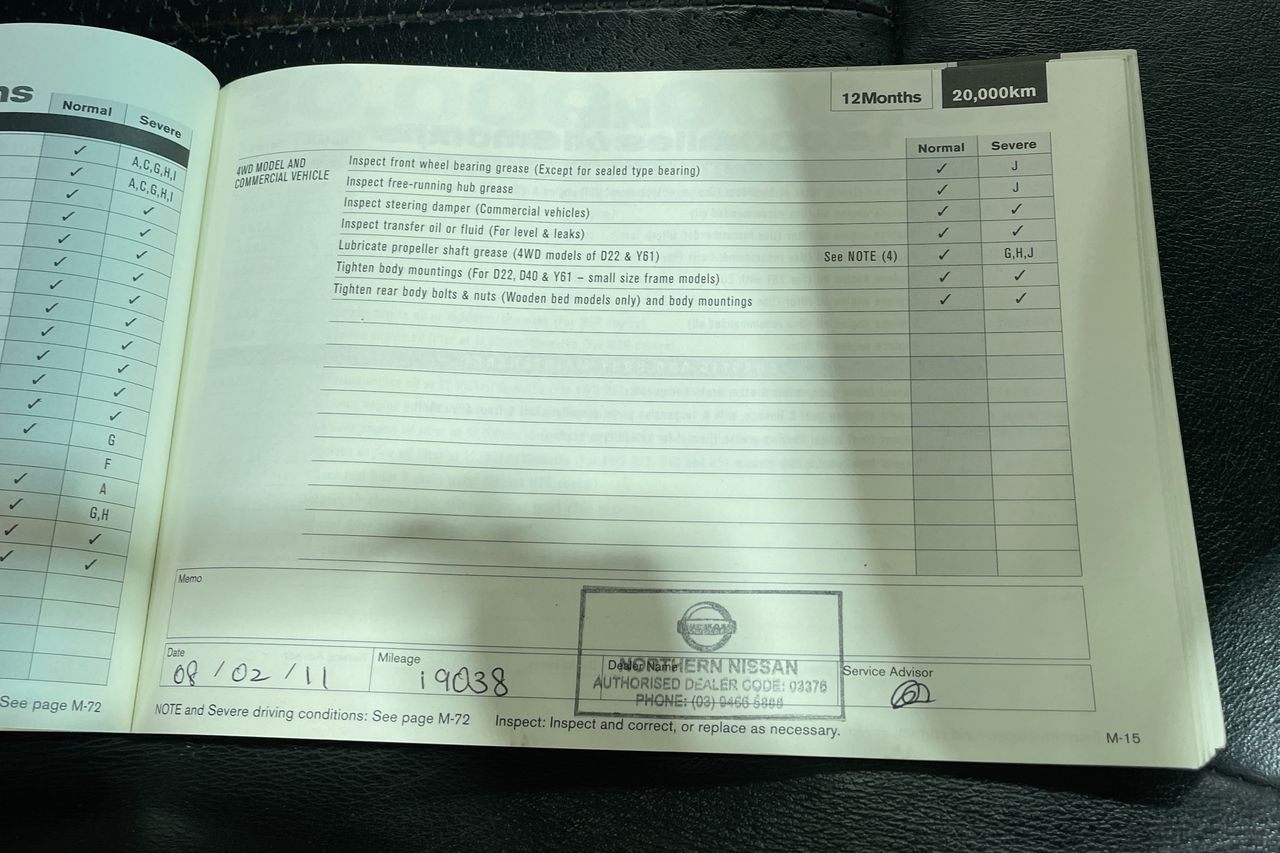 ns
Normal Severe
✓ A,C,G,H,I
✓ A,C,G,H,I
✓ ✓
✓ ✓
✓ ✓
✓ ✓
✓ ✓
✓ ✓
✓ ✓
✓ ✓
✓ ✓
✓ G
F
✓ A
✓ G,H
✓ ✓
✓ ✓
See page M-72
12Months 20,000km
Normal Severe
4WD MODEL AND
COMMERCIAL VEHICLE
Inspect front wheel bearing grease (Except for sealed type bearing) ✓ J
Inspect free-running hub grease ✓ J
Inspect steering damper (Commercial vehicles) ✓ ✓
Inspect transfer oil or fluid (For level & leaks) ✓ ✓
Lubricate propeller shaft grease (4WD models of D22 & Y61) See NOTE (4) ✓ G,H,J
Tighten body mountings (For D22, D40 & Y61 – small size frame models) ✓ ✓
Tighten rear body bolts & nuts (Wooden bed models only) and body mountings ✓ ✓
Memo
Date 08/02/11
Mileage 19038
Dealer Name
NORTHERN NISSAN
AUTHORISED DEALER CODE: 03376
PHONE: (03) 9466
Service Advisor
NOTE and Severe driving conditions: See page M-72 Inspect: Inspect and correct, or replace as necessary.
M-15